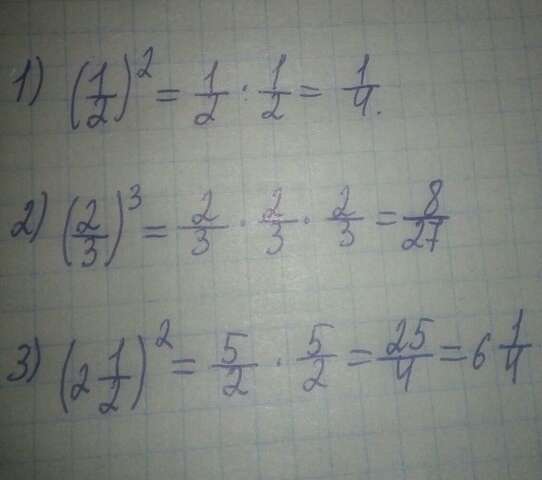 1) (1/2)² = 1/2 : 1/2 = 1/4.
2) (2/3)³ = 2/3 · 2/3 · 2/3 = 8/27
3) (2 1/2)² = 5/2 · 5/2 = 25/4 = 6 1/4